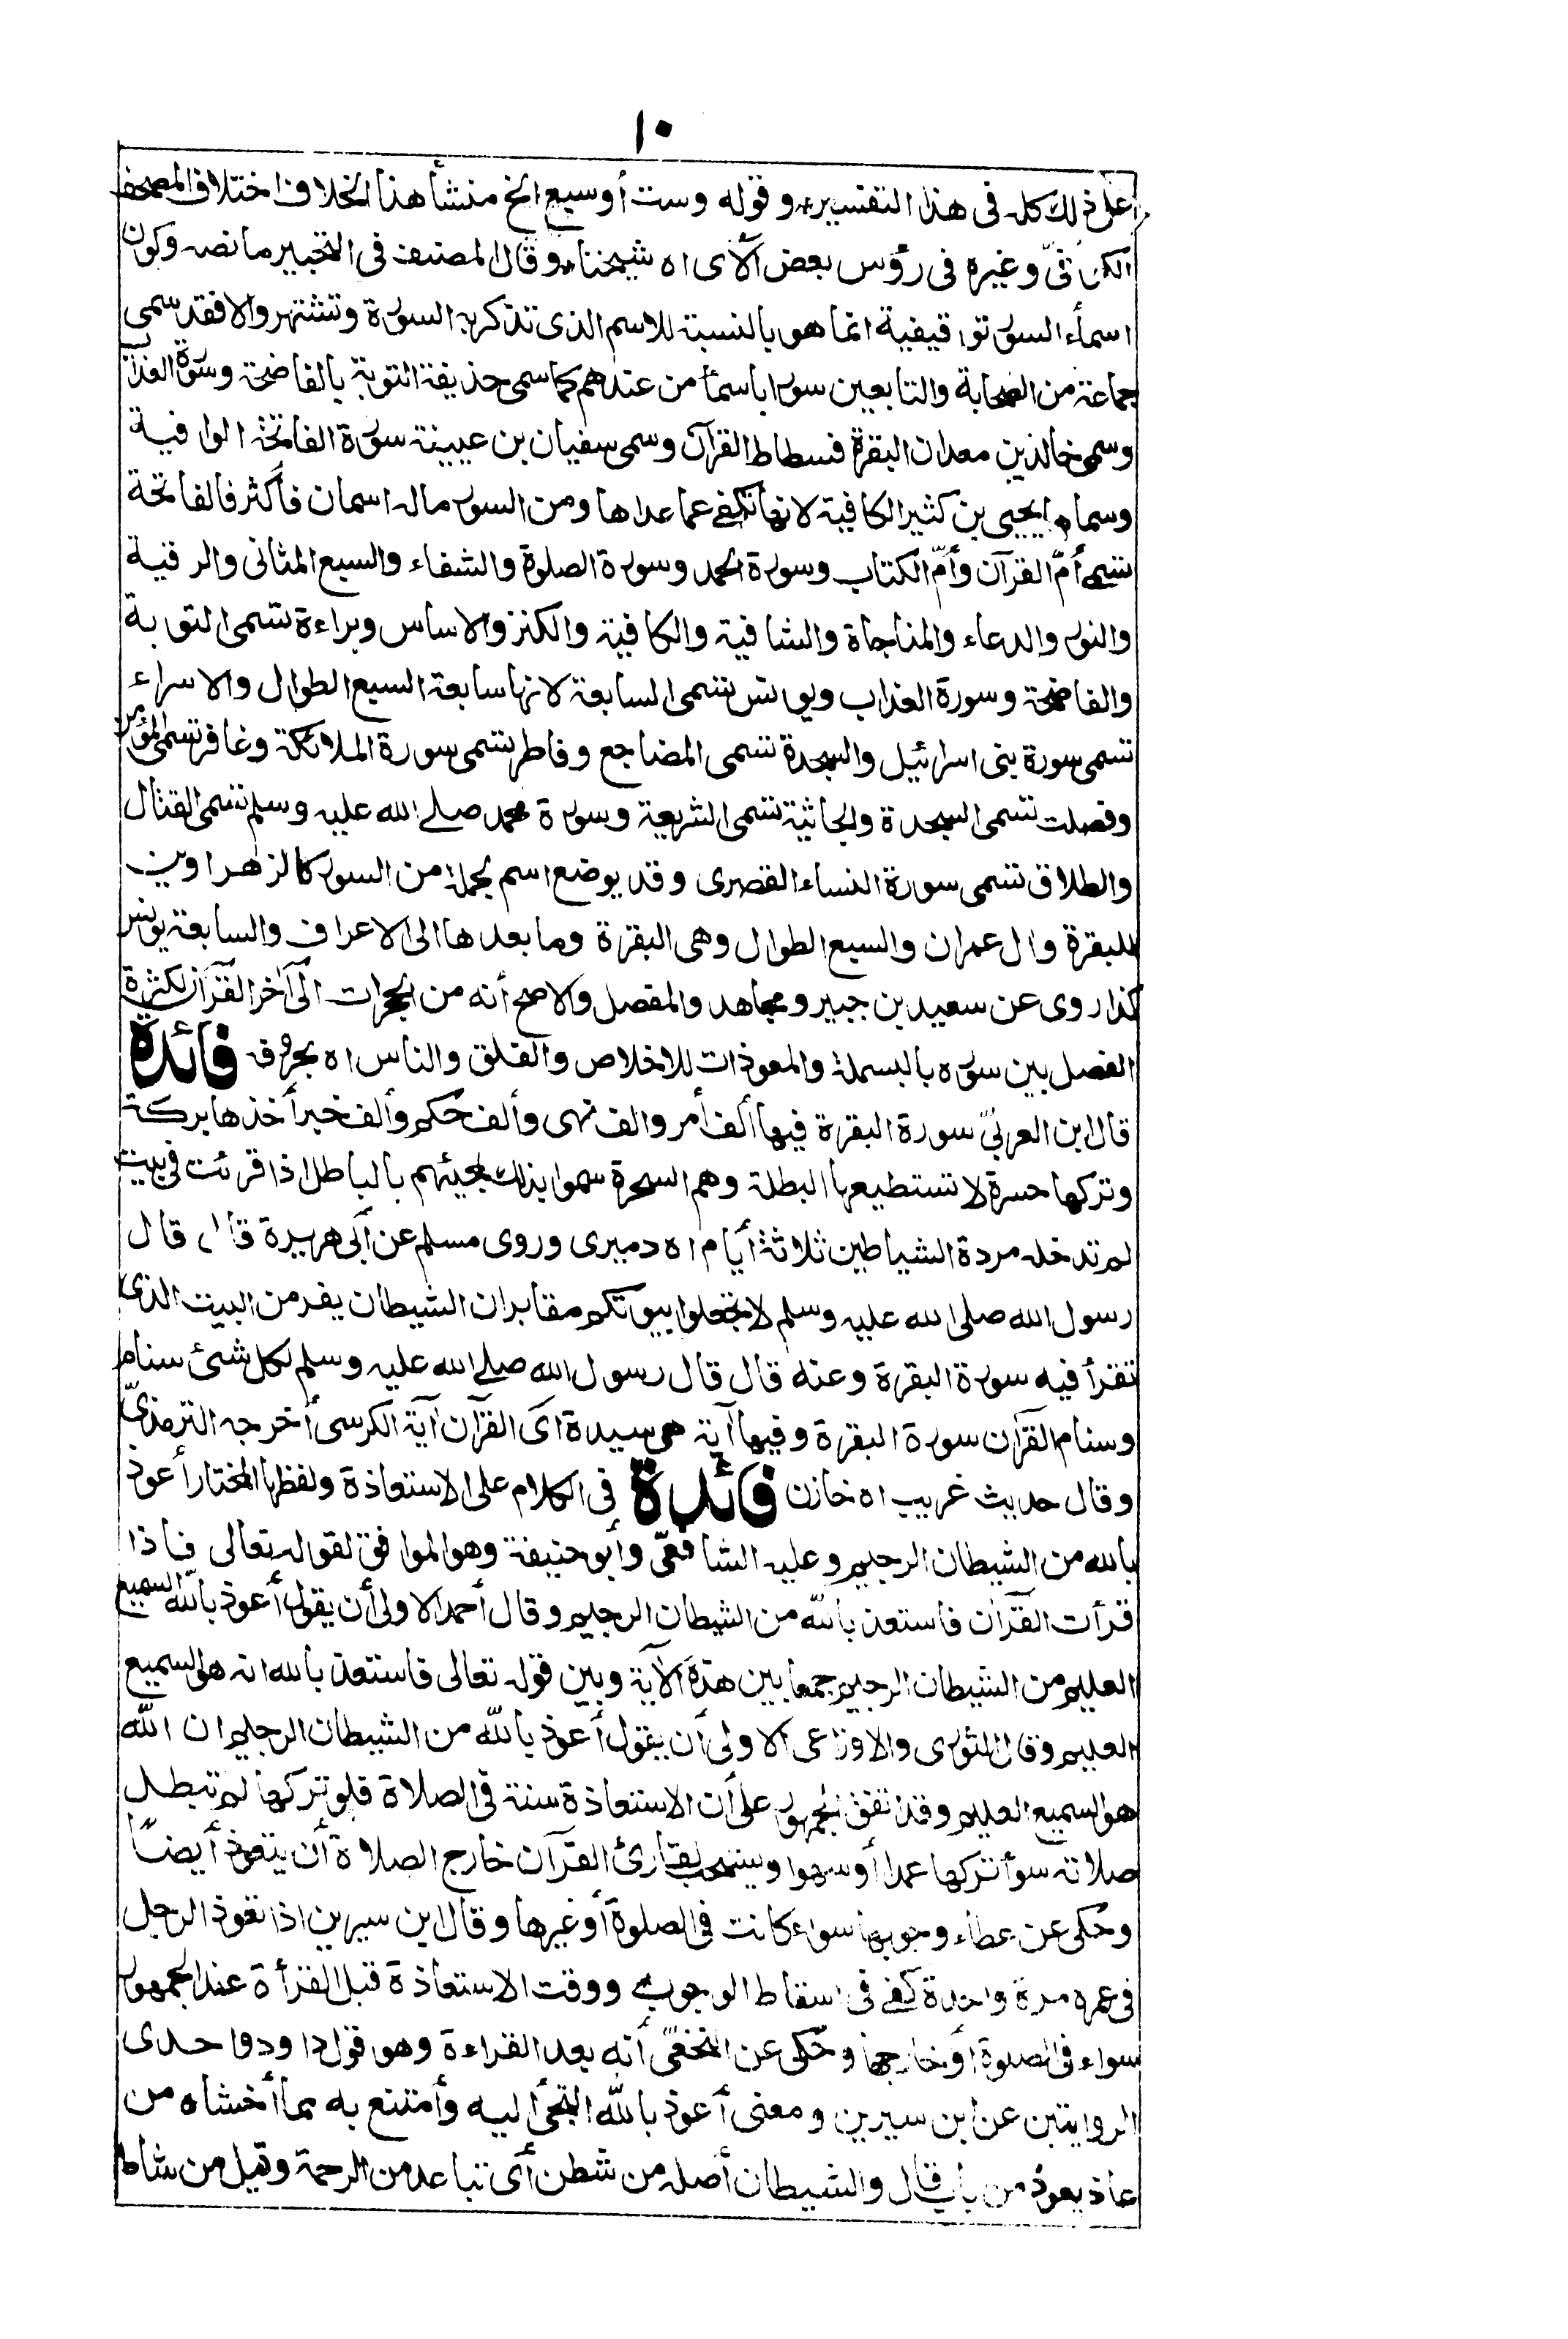 ١٠
على ذلك كله فى هذا التفسير وقوله وست أو سبع الخ منشأ هذا الخلاف اختلاف المصحف
الكوفىّ وغيره فى رؤس بعض الآى اه شيخنا وقال المصنف فى التحبير ما نصه وكون
اسمأء السور توقيفية انما هو بالنسبة للاسم الذى تذكر به السورة وتشتهر والا فقد سمى
جماعة من الصحابة والتابعين سورا باسمأ من عندهم كما سمى حذيفة التوبة بالفاضحة وسورة العذاب
وسمى خالد بن معدان البقرة فسطاط القرآن وسمى سفيان بن عيينة سورة الفاتحة الوافية
وسماها يحيى بن كثير الكافية لانها تكفى عما عداها ومن السور ماله اسمان فأكثر فالفاتحة
تسمى أمّ القرآن وأمّ الكتاب وسورة الحمد وسورة الصلوة والشفاء والسبع المثانى والرقية
والنور والدعاء والمناجاة والشافية والكافية والكنز والاساس وبراءة تسمى التوبة
والفاضحة وسورة العذاب ويونس تسمى السابعة لانها سابعة السبع الطوال والاسراء
تسمى سورة بنى اسرائيل والسجدة تسمى المضاجع وفاطر تسمى سورة الملائكة وغافر تسمى المؤمن
وفصلت تسمى السجدة والجاثية تسمى الشريعة وسورة محمد صلے الله عليه وسلم تسمى القتال
والطلاق تسمى سورة النساء القصرى وقد يوضع اسم لجملة من السور كالزهراوين
للبقرة وال عمران والسبع الطوال وهى البقرة وما بعدها الى الاعراف والسابعة يونس
كذا روى عن سعيد بن جبير ومجاهد والمفصل والاصح أنه من الحجرات الى آخر القرآن لكثرة
الفصل بين سوره بالبسملة والمعوذات للاخلاص والفلق والناس اه بحروفه فائدة
قال ابن العربىّ سورة البقرة فيها ألف أمر والف نهى وألف حكم وألف خبر أخذها بركة
وتركها حسرة لا تستطيعها البطلة وهم السحرة سموا بذلك لمجيئهم بالباطل اذا قرئت فى بيت
لم تدخله مردة الشياطين ثلاثة أيام اه دميرى وروى مسلم عن أبى هريرة قال قال
رسول الله صلى الله عليه وسلم لا تجعلوا بيوتكم مقابر ان الشيطان يفر من البيت الذى
تقرأ فيه سورة البقرة وعنه قال قال رسول الله صلے الله عليه وسلم لكل شئ سنام
وسنام القرآن سورة البقرة وفيها آية هى سيدة اى القرآن آية الكرسى أخرجه الترمذىّ
وقال حديث غريب اه خازن فائدة فى الكلام على الاستعاذة ولفظها المختار أعوذ
بالله من الشيطان الرجيم وعليه الشافعىّ وأبو حنيفة وهو الموافق لقوله تعالى فاذا
قرأت القرآن فاستعذ بالله من الشيطان الرجيم وقال أحمد الاولى أن يقول أعوذ بالله السميع
العليم من الشيطان الرجيم جمعا بين هذه الآية وبين قوله تعالى فاستعذ بالله انه هو السميع
العليم وقال الثورى والاوزاعى الاولى أن يقول أعوذ بالله من الشيطان الرجيم ان الله
هو السميع العليم وقد اتفق الجمهور على أن الاستعاذة سنة فى الصلاة فلو تركها لم تبطل
صلاته سوأ تركها عمدا أو سهوا ويستحب لقارئ القرآن خارج الصلاة أن يتعوذ أيضًا
وحكى عن عطاء وجوبها سواء كانت فى الصلوة أو غيرها وقال ابن سيرين اذا تعوذ الرجل
فى عمره مرة واحدة كفى فى اسقاط الوجوب ووقت الاستعاذة قبل القرأة عند الجمهور
سواء فى الصلوة أو خارجها وحكى عن النخعىّ أنه بعد القراءة وهو قول داود واحدى
الروايتين عن ابن سيرين ومعنى أعوذ بالله التجئ اليه وأمتنع به مما أخشاه من
عاذ يعوذ من باب قال والشيطان أصله من شطن أى تباعد من الرحمة وقيل من شاط